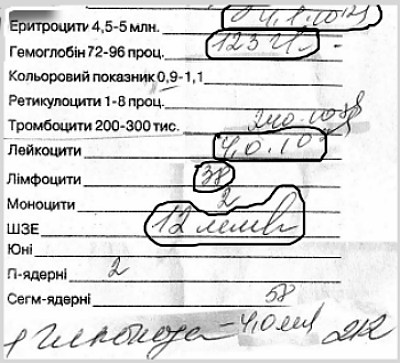 Еритроцити 4,5-5 млн. 4,1·10¹²/л
Гемоглобін 72-96 проц. 123 г/л
Кольоровий показник 0,9-1,1
Ретикулоцити 1-8 проц.
Тромбоцити 200-300 тис. 240·10⁹/л
Лейкоцити 4,0·10⁹
Лімфоцити 38
Моноцити 2
ШЗЕ 12 мм/г
Юні
П-ядерні 2
Сегм-ядерні 58
Глюкоза - 4,0